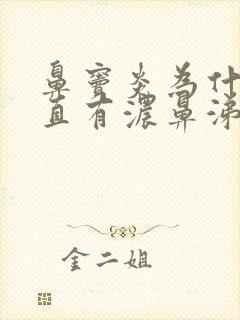 鼻窦炎为什
直有浓鼻涕
金二姐